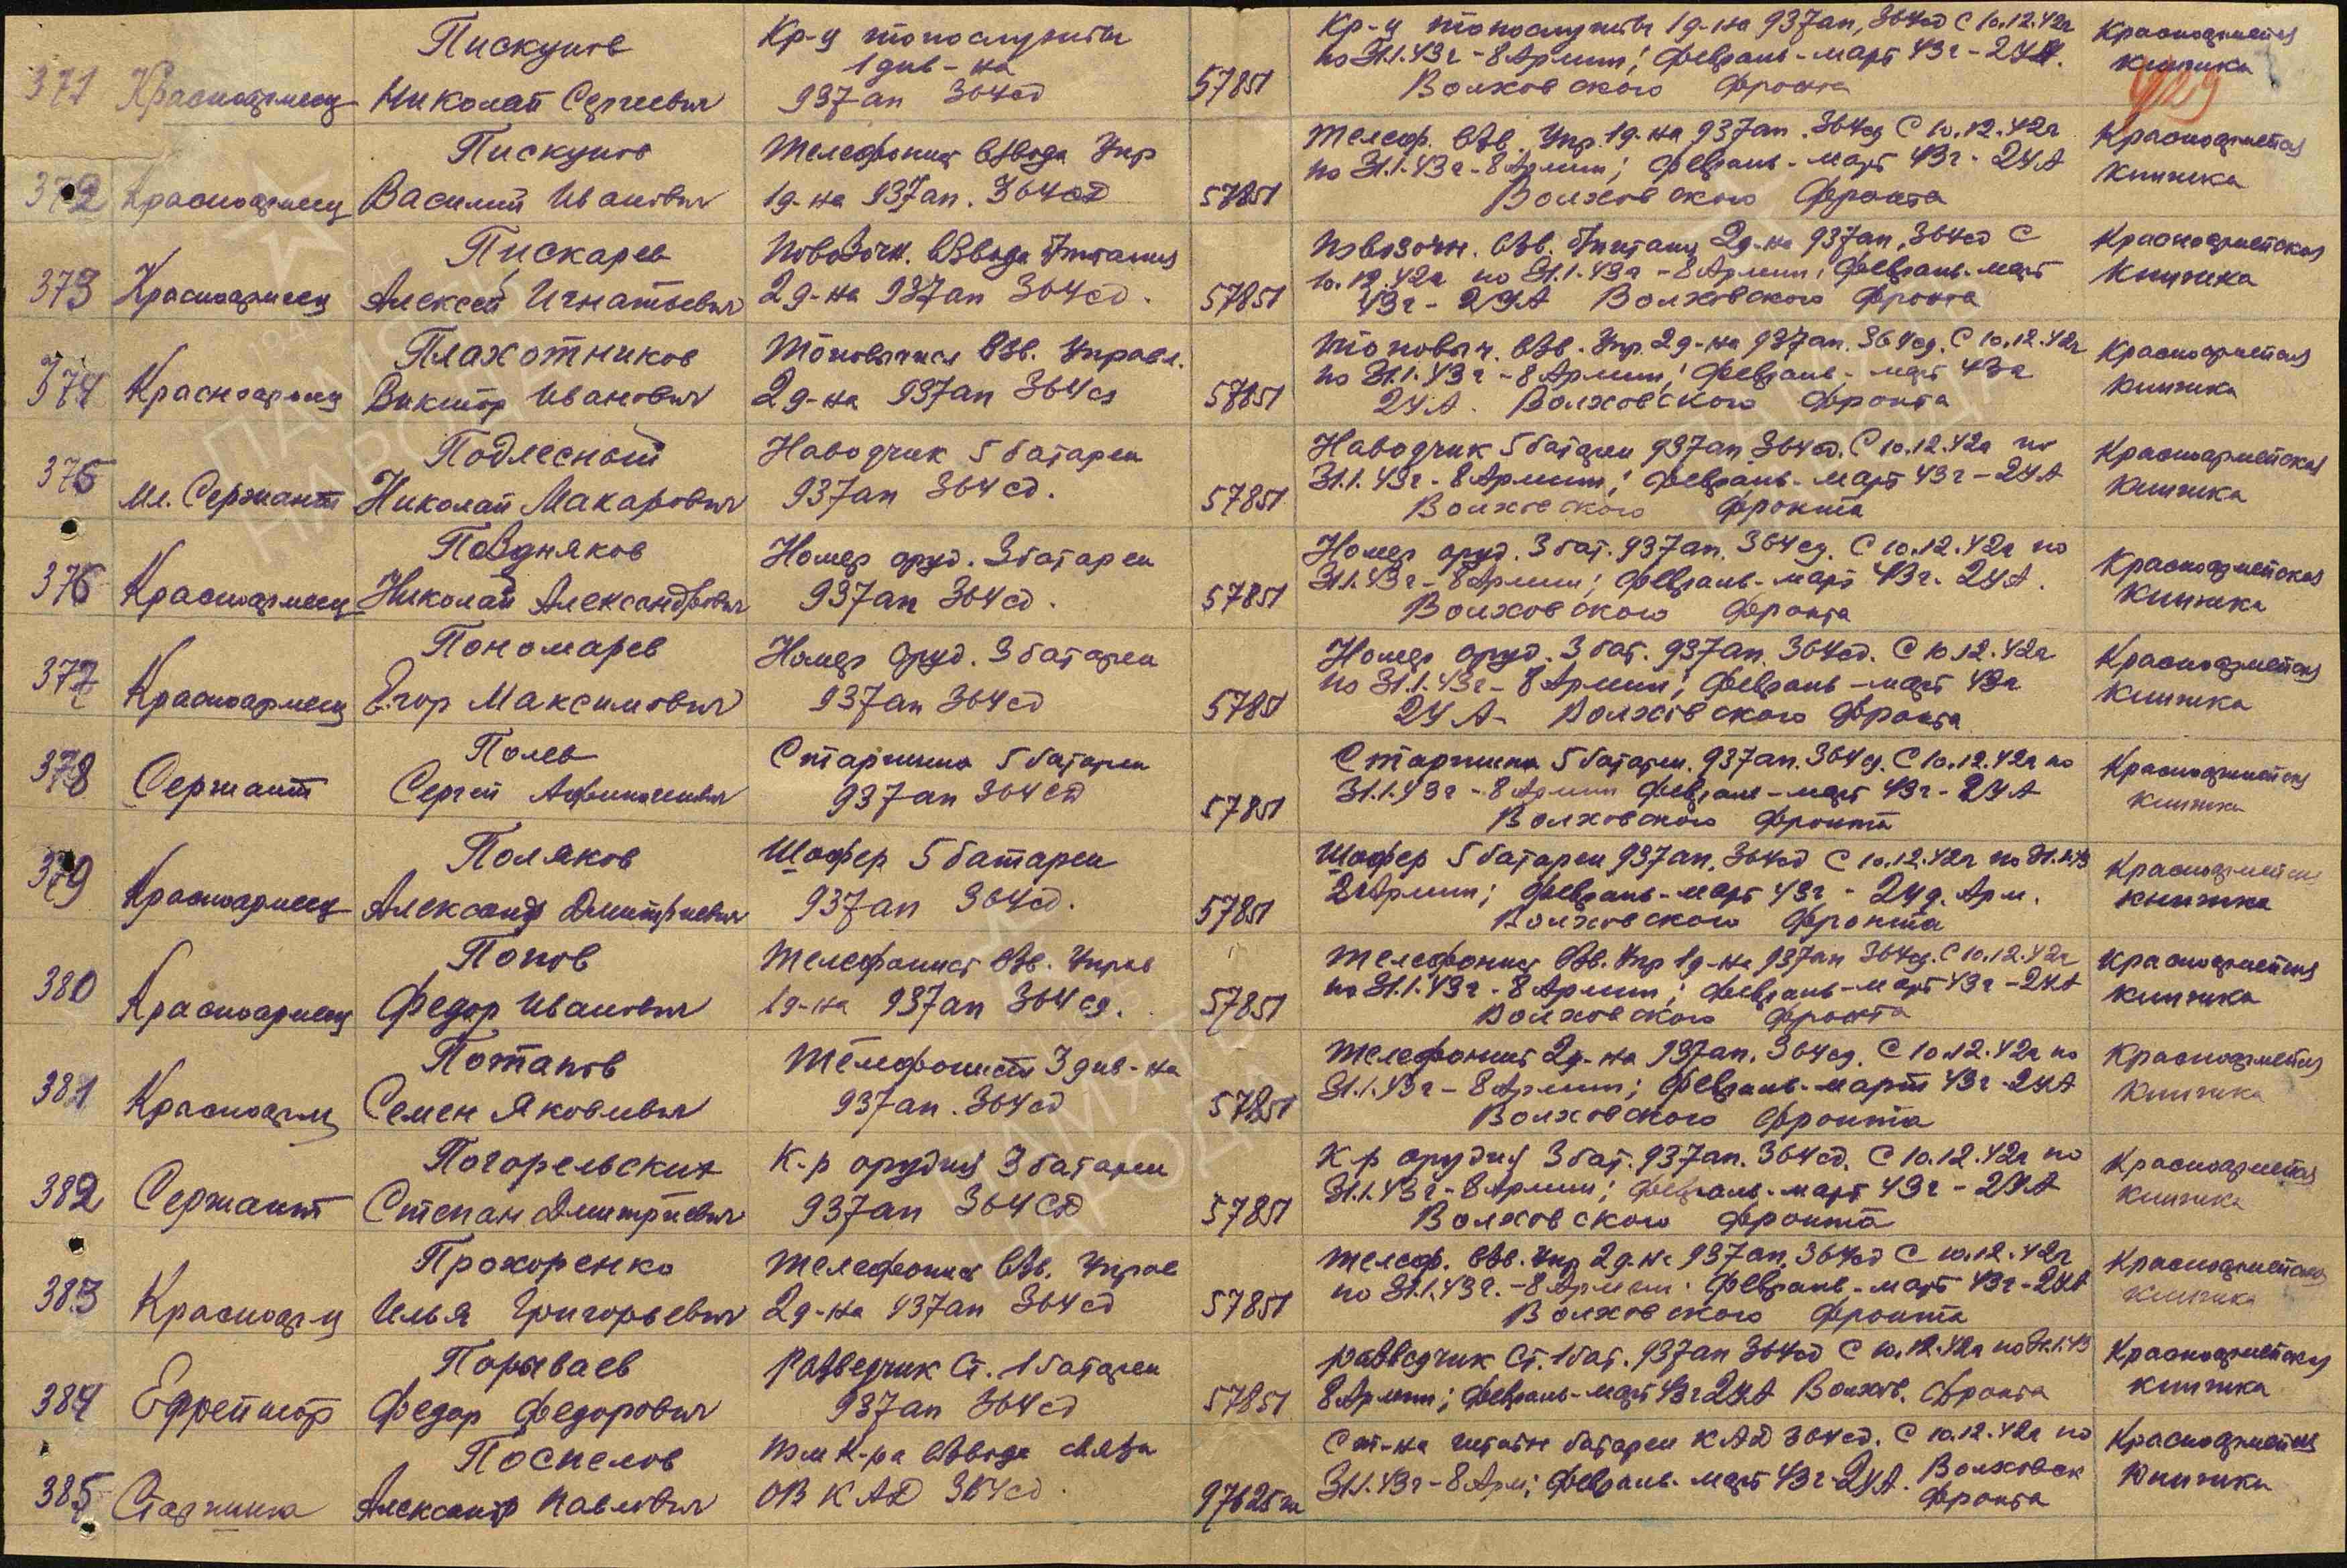 371 Красноармеец Пискунов Николай Сергеевич Кр-ц топослужбы 1 див-на 937 ап 364 сд 57851 Кр-ц топослужбы 1 д-на 937 ап, 364 сд С 10.12.42 г Красноармейская
по 31.1.43 г - 8 Армии; февраль-март 43 г - 2 УА. книжка
Волховского фронта 429
372 Красноармеец Пискунов Василий Иванович Телефонист взвода Упр 1 д-на 937 ап. 364 сд 57851 Телеф. взв. Упр. 1 д-на 937 ап. 364 сд С 10.12.42 г Красноармейская
по 31.1.43 г - 8 Армии; февраль-март 43 г - 2 УА книжка
Волховского фронта
373 Красноармеец Пискарев Алексей Игнатьевич Повозочн. взвода б/питания 2 д-на 937 ап 364 сд. 57851 Повозочн. взв. б/питания 2 д-на 937 ап, 364 сд С Красноармейская
10.12.42 г по 31.1.43 г - 8 Армии; февраль-март книжка
43 г - 2 УА Волховского фронта
374 Красноармеец Плахотников Виктор Иванович Топовычисл взв. Управл. 2 д-на 937 ап 364 сд 57851 Топовыч. взв. Упр. 2 д-на 937 ап. 364 сд. С 10.12.42 г Красноармейская
по 31.1.43 г - 8 Армии; февраль-март 43 г книжка
2 УА. Волховского фронта
375 Мл. Сержант Подлесный Николай Макарович Наводчик 5 батареи 937 ап 364 сд. 57851 Наводчик 5 батареи 937 ап 364 сд. С 10.12.42 г по Красноармейская
31.1.43 г - 8 Армии; февраль-март 43 г - 2 УА книжка
Волховского фронта
376 Красноармеец Поздняков Николай Александрович Номер оруд. 3 батареи 937 ап 364 сд. 57851 Номер оруд. 3 бат. 937 ап. 364 сд. С 10.12.42 г по Красноармейская
31.1.43 г - 8 Армии; февраль-март 43 г - 2 УА. книжка
Волховского фронта
377 Красноармеец Пономарев Егор Максимович Номер оруд. 3 батареи 937 ап 364 сд 57851 Номер оруд. 3 бат. 937 ап. 364 сд. С 10.12.42 г Красноармейская
по 31.1.43 г - 8 Армии; февраль-март 43 г книжка
2 УА - Волховского фронта
378 Сержант Полев Сергей Старшина 5 батареи 937 ап 364 сд 57851 Старшина 5 батареи. 937 ап. 364 сд. С 10.12.42 г по Красноармейская
31.1.43 г - 8 Армии февраль-март 43 г - 2 УА книжка
Волховского фронта
379 Красноармеец Поляков Александр Дмитриевич Шофер 5 батареи 937 ап 364 сд. 57851 Шофер 5 батареи 937 ап. 364 сд С 10.12.42 г по 31.1.43 Красноармейская
Армии; февраль-март 43 г - 2 уд. Арм. книжка
Волховского фронта
380 Красноармеец Попов Федор Иванович Телефонист взв. Управ 1 д-на 937 ап 364 сд. 57851 Телефонист взв. Упр 1 д-на 937 ап 364 сд. С 10.12.42 г Красноармейская
по 31.1.43 г - 8 Армии; февраль-март 43 г - 2 УА книжка
Волховского фронта
381 Красноарм Потапов Семен Яковлевич Телефонист 3 див-на 937 ап. 364 сд 57851 Телефонист 2 д-на 937 ап. 364 сд. С 10.12.42 г по Красноармейская
31.1.43 г - 8 Армии; февраль-март 43 г - 2 УА книжка
Волховского фронта
382 Сержант Погорельских Степан Дмитриевич К-р орудия 3 батареи 937 ап 364 сд 57851 К-р орудия 3 бат. 937 ап. 364 сд. С 10.12.42 г по Красноармейская
31.1.43 г - 8 Армии; февраль-март 43 г - 2 УА книжка
Волховского фронта
383 Красноарм Прохоренко Илья Григорьевич Телефонист взв. Управ 2 д-на 937 ап 364 сд 57851 Телеф. взв. Упр 2 д-на 937 ап, 364 сд С 10.12.42 г Красноармейская
по 31.1.43 г. - 8 Армии. февраль-март 43 г - 2 УА книжка
Волховского фронта
384 Ефрейтор Порываев Федор Федорович Разведчик Ст. 1 батареи 937 ап 364 сд 57851 Разведчик Ст. 1 бат. 937 ап 364 сд С 10.12.42 г по 31.1.43 Красноармейская
8 Армии; февраль-март 43 г 2 УА Волхов. фронта книжка
385 Старшина Поспелов Александр Павлович Пом к-ра взвода связи ОВ КАД 364 сд. 97625 Ст-на штабн батареи КАД 364 сд. С 10.12.42 г по Красноармейская
31.1.43 г - 8 Арм; февраль-март 43 г - 2 УА. Волховск книжка
фронта